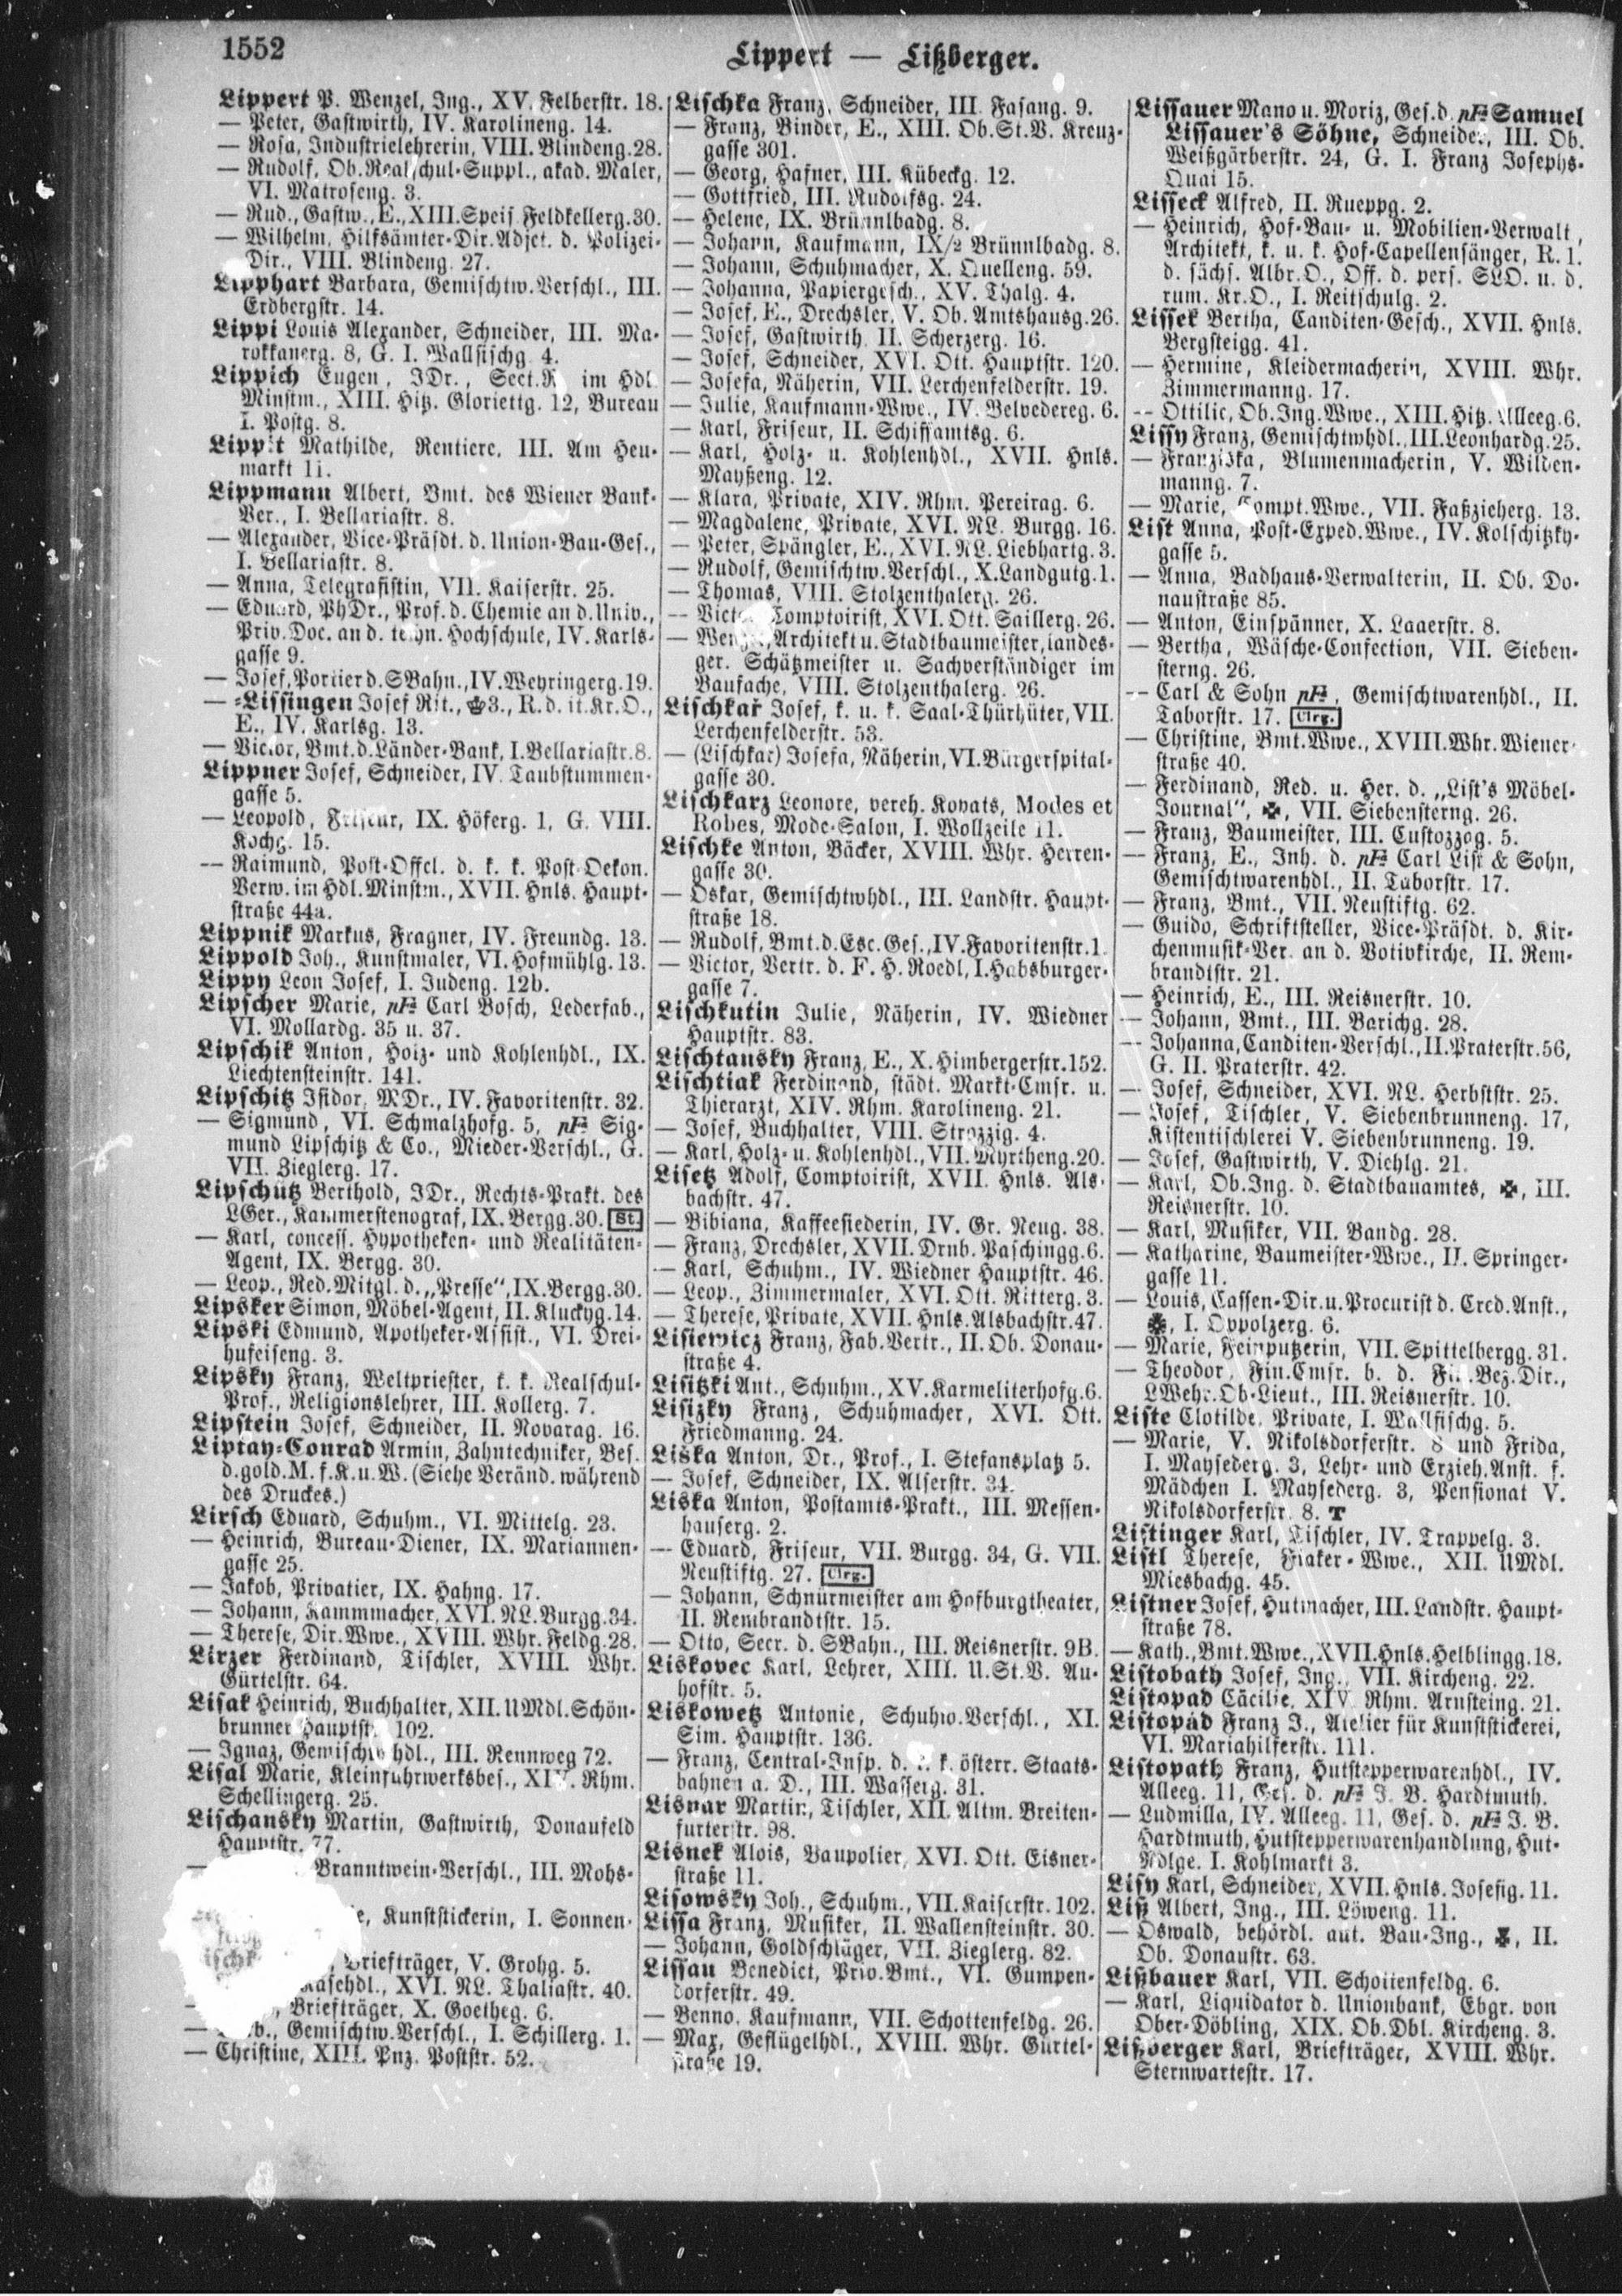 1552
Lippert — Lißberger.
Lippert P. Wenzel, Ing., XV. Felberstr. 18.
— Peter, Gastwirth, IV. Karolineng. 14.
— Rosa, Industrielehrerin, VIII. Blindeng. 28.
— Rudolf, Ob.Realschul-Suppl., akad. Maler,
VI. Matroseng. 3.
— Rud., Gastw., E., XIII. Speis. Feldkellerg. 30.
— Wilhelm, Hilfsämter-Dir.Adjct. d. Polizei-
Dir., VIII. Blindeng. 27.
Lipphart Barbara, Gemischtw.Verschl., III.
Erdbergstr. 14.
Lippi Louis Alexander, Schneider, III. Ma-
rokkanerg. 8, G. I. Wallfischg. 4.
Lippich Eugen, JDr., Sect.R. im Hdl.
Minstm., XIII. Hitz. Gloriettg. 12, Bureau
I. Postg. 8.
Mathilde, Rentiere, III. Am Heu-
markt 11.
Lippmann Albert, Bmt. des Wiener Bank-
Ver., I. Bellariastr. 8.
— Alexander, Vice-Präsdt. d. Union-Bau-Ges.,
I. Bellariastr. 8.
— Anna, Telegrafistin, VII. Kaiserstr. 25.
— Eduard, PhDr., Prof. d. Chemie an d. Univ.,
Priv.Doc. an d. techn. Hochschule, IV. Karls-
gasse 9.
— Josef, Portier d. SBahn., IV. Weyringerg. 19.
— =Lissingen Josef Rit., 3., R. d. it. Kr.O.,
E., IV. Karlsg. 13.
— Victor, Bmt. d. Länder-Bank, I. Bellariastr. 8.
Lippner Josef, Schneider, IV. Taubstummen-
gasse 5.
— Leopold, Friseur, IX. Höferg. 1, G. VIII.
Kochg. 15.
— Raimund, Post-Offcl. d. k. k. Post-Oekon.
Verw. im Hdl.Minstm., XVII. Hnls. Haupt-
straße 44a.
Lippnik Markus, Fragner, IV. Freundg. 13.
Lippold Joh., Kunstmaler, VI. Hofmühlg. 13.
Lippy Leon Josef, I. Judeng. 12b.
Lipscher Marie, pFa Carl Bosch, Lederfab.,
VI. Mollardg. 35 u. 37.
Lipschik Anton, Holz- und Kohlenhdl., IX.
Liechtensteinstr. 141.
Lipschitz Isidor, MDr., IV. Favoritenstr. 32.
— Sigmund, VI. Schmalzhofg. 5, pFa Sig-
mund Lipschitz & Co., Mieder-Verschl., G.
VII. Zieglerg. 17.
Lipschütz Berthold, JDr., Rechts-Prakt. des
LGer., Kammerstenograf, IX. Bergg. 30. St.
— Karl, concess. Hypotheken- und Realitäten-
Agent, IX. Bergg. 30.
— Leop., Red.Mitgl. d. „Presse“, IX. Bergg. 30.
Lipsker Simon, Möbel-Agent, II. Kluckyg. 14.
Lipski Edmund, Apotheker-Assist., VI. Drei-
hufeiseng. 3.
Lipsky Franz, Weltpriester, k. k. Realschul-
Prof., Religionslehrer, III. Kollerg. 7.
Lipstein Josef, Schneider, II. Novarag. 16.
Liptay=Conrad Armin, Zahntechniker, Bes.
d. gold. M. f. K. u. W. (Siehe Veränd. während
des Druckes.)
Lirsch Eduard, Schuhm., VI. Mittelg. 23.
— Heinrich, Bureau-Diener, IX. Mariannen-
gasse 25.
— Jakob, Privatier, IX. Hahng. 17.
— Johann, Kammmacher, XVI. NL. Burgg. 34.
— Therese, Dir.Wwe., XVIII. Whr. Feldg. 28.
Lirzer Ferdinand, Tischler, XVIII. Whr.
Gürtelstr. 64.
Lisak Heinrich, Buchhalter, XII. UMdl. Schön-
brunner Hauptstr. 102.
— Ignaz, Gemischtwhdl., III. Rennweg 72.
Lisal Marie, Kleinfuhrwerksbes., XIV. Rhm.
Schellingerg. 25.
Lischansky Martin, Gastwirth, Donaufeld
Hauptstr. 77.
Branntwein-Verschl., III. Mohs-
Kunststickerin, I. Sonnen-
Briefträger, V. Grohg. 5.
Kaschdl., XVI. NL. Thaliastr. 40.
Briefträger, X. Goetheg. 6.
Gemischtw.Verschl., I. Schillerg. 1.
— Christine, XIII. Pnz. Poststr. 52.
Lischka Franz, Schneider, III. Fasang. 9.
— Franz, Binder, E., XIII. Ob.St.V. Kreuz-
gasse 301.
— Georg, Hafner, III. Kübeckg. 12.
— Gottfried, III. Rudolfsg. 24.
— Helene, IX. Brünnlbadg. 8.
— Johann, Kaufmann, IX/2 Brünnlbadg. 8.
— Johann, Schuhmacher, X. Quelleng. 59.
— Johanna, Papiergesch., XV. Thalg. 4.
— Josef, E., Drechsler, V. Ob. Amtshausg. 26.
— Josef, Gastwirth, II. Scherzerg. 16.
— Josef, Schneider, XVI. Ott. Hauptstr. 120.
— Josefa, Näherin, VII. Lerchenfelderstr. 19.
— Julie, Kaufmann-Wwe., IV. Belvedereg. 6.
— Karl, Friseur, II. Schiffamtsg. 6.
— Karl, Holz- u. Kohlenhdl., XVII. Hnls.
Mayßeng. 12.
— Klara, Private, XIV. Rhm. Pereirag. 6.
— Magdalene, Private, XVI. NL. Burgg. 16.
— Peter, Spängler, E., XVI. NL. Liebhartg. 3.
— Rudolf, Gemischtw.Verschl., X. Landgutg. 1.
— Thomas, VIII. Stolzenthalerg. 26.
— Comptoirist, XVI. Ott. Saillerg. 26.
— Architekt u. Stadtbaumeister, landes-
ger. Schätzmeister u. Sachverständiger im
Baufache, VIII. Stolzenthalerg. 26.
Lischkař Josef, k. u. k. Saal-Thürhüter, VII.
Lerchenfelderstr. 53.
— (Lischkar) Josefa, Näherin, VI. Bürgerspital-
gasse 30.
Lischkarz Leonore, vereh. Kovats, Modes et
Robes, Mode-Salon, I. Wollzeile 11.
Lischke Anton, Bäcker, XVIII. Whr. Herren-
gasse 30.
— Oskar, Gemischtwhdl., III. Landstr. Haupt-
straße 18.
— Rudolf, Bmt. d. Esc. Ges., IV. Favoritenstr. 1.
— Victor, Vertr. d. F. H. Roedl, I. Habsburger-
gasse 7.
Lischkutin Julie, Näherin, IV. Wiedner
Hauptstr. 83.
Lischtansky Franz, E., X. Himbergerstr. 152.
Lischtiak Ferdinand, städt. Markt-Cmsr. u.
Thierarzt, XIV. Rhm. Karolineng. 21.
— Josef, Buchhalter, VIII. Strozzig. 4.
— Karl, Holz- u. Kohlenhdl., VII. Myrtheng. 20.
Lisetz Adolf, Comptoirist, XVII. Hnls. Als-
bachstr. 47.
— Bibiana, Kaffeesiederin, IV. Gr. Neug. 38.
— Franz, Drechsler, XVII. Drnb. Paschingg. 6.
— Karl, Schuhm., IV. Wiedner Hauptstr. 46.
— Leop., Zimmermaler, XVI. Ott. Ritterg. 3.
— Therese, Private, XVII. Hnls. Alsbachstr. 47.
Lisiewicz Franz, Fab.Vertr., II. Ob. Donau-
straße 4.
Lisitzki Ant., Schuhm., XV. Karmeliterhofg. 6.
Lisizky Franz, Schuhmacher, XVI. Ott.
Friedmanng. 24.
Liska Anton, Dr., Prof., I. Stefansplatz 5.
— Josef, Schneider, IX. Alserstr. 34.
Liska Anton, Postamts-Prakt., III. Messen-
hauserg. 2.
— Eduard, Friseur, VII. Burgg. 34, G. VII.
Neustiftg. 27. Clrg.
— Johann, Schnürmeister am Hofburgtheater,
II. Rembrandtstr. 15.
— Otto, Secr. d. SBahn., III. Reisnerstr. 9B.
Liskovec Karl, Lehrer, XIII. U.St.V. Au-
hofstr. 5.
Liskowetz Antonie, Schuhw.Verschl., XI.
Sim. Hauptstr. 136.
— Franz, Central-Insp. d. k. k. österr. Staats-
bahnen a. D., III. Wasserg. 31.
Lisnar Martin, Tischler, XII. Altm. Breiten-
furterstr. 98.
Lisnek Alois, Baupolier, XVI. Ott. Eisner-
straße 11.
Lisowsky Joh., Schuhm., VII. Kaiserstr. 102.
Lissa Franz, Musiker, II. Wallensteinstr. 30.
— Johann, Goldschläger, VII. Zieglerg. 82.
Lissau Benedict, Priv.Bmt., VI. Gumpen-
dorferstr. 49.
— Benno, Kaufmann, VII. Schottenfeldg. 26.
— Max, Geflügelhdl., XVIII. Whr. Gürtel-
straße 19.
Lissauer Mano u. Moriz, Ges. d. pFa Samuel
Lissauer's Söhne, Schneider, III. Ob.
Weißgärberstr. 24, G. I. Franz Josephs-
Quai 15.
Lisseck Alfred, II. Rueppg. 2.
— Heinrich, Hof-Bau- u. Mobilien-Verwalt.,
Architekt, k. u. k. Hof-Capellensänger, R. 1.
d. sächs. Albr.O., Off. d. pers. SLO. u. d.
rum. Kr.O., I. Reitschulg. 2.
Lissek Bertha, Canditen-Gesch., XVII. Hnls.
Bergsteigg. 41.
— Hermine, Kleidermacherin, XVIII. Whr.
Zimmermanng. 17.
— Ottilie, Ob.Ing.Wwe., XIII. Hitz. Alleeg. 6.
Lissy Franz, Gemischtwhdl., III. Leonhardg. 25.
— Franziska, Blumenmacherin, V. Wilden-
manng. 7.
— Marie, Compt.Wwe., VII. Faßzieherg. 13.
List Anna, Post-Exped.Wwe., IV. Kolschitzky-
gasse 5.
— Anna, Badhaus-Verwalterin, II. Ob. Do-
naustraße 85.
— Anton, Einspänner, X. Laaerstr. 8.
— Bertha, Wäsche-Confection, VII. Sieben-
sterng. 26.
— Carl & Sohn pFa, Gemischtwarenhdl., II.
Taborstr. 17. Clrg.
— Christine, Bmt.Wwe., XVIII. Whr. Wiener-
straße 40.
— Ferdinand, Red. u. Her. d. „List's Möbel-
Journal“, ✠, VII. Siebensterng. 26.
— Franz, Baumeister, III. Custozzag. 5.
— Franz, E., Inh. d. pFa Carl List & Sohn,
Gemischtwarenhdl., II. Taborstr. 17.
— Franz, Bmt., VII. Neustiftg. 62.
— Guido, Schriftsteller, Vice-Präsdt. d. Kir-
chenmusik-Ver. an d. Votivkirche, II. Rem-
brandtstr. 21.
— Heinrich, E., III. Reisnerstr. 10.
— Johann, Bmt., III. Barichg. 28.
— Johanna, Canditen-Verschl., II. Praterstr. 56,
G. II. Praterstr. 42.
— Josef, Schneider, XVI. NL. Herbststr. 25.
— Josef, Tischler, V. Siebenbrunneng. 17,
Kistentischlerei V. Siebenbrunneng. 19.
— Josef, Gastwirth, V. Diehlg. 21.
— Karl, Ob.Ing. d. Stadtbauamtes, ✠, III.
Reisnerstr. 10.
— Karl, Musiker, VII. Bandg. 28.
— Katharine, Baumeister-Wwe., II. Springer-
gasse 11.
— Louis, Cassen-Dir. u. Procurist d. Cred.Anst.,
I. Oppolzerg. 6.
— Marie, Feinputzerin, VII. Spittelbergg. 31.
— Theodor, Fin.Cmsr. b. d. Fin.Bez.Dir.,
LWehr.Ob-Lieut., III. Reisnerstr. 10.
Liste Clotilde, Private, I. Wallfischg. 5.
— Marie, V. Nikolsdorferstr. 8 und Frida,
I. Maysederg. 3, Lehr- und Erzieh.Anst. f.
Mädchen I. Maysederg. 3, Pensionat V.
Nikolsdorferstr. 8. T
Listinger Karl, Tischler, IV. Trappelg. 3.
Listl Therese, Fiaker-Wwe., XII. UMdl.
Miesbachg. 45.
Listner Josef, Hutmacher, III. Landstr. Haupt-
straße 78.
— Kath., Bmt.Wwe., XVII. Hnls. Helblingg. 18.
Listobath Josef, Ing., VII. Kircheng. 22.
Listopad Cäcilie, XIV. Rhm. Arnsteing. 21.
Listopád Franz J., Atelier für Kunststickerei,
VI. Mariahilferstr. 111.
Listopath Franz, Hutstepperwarenhdl., IV.
Alleeg. 11, Ges. d. pFa J. B. Hardtmuth.
— Ludmilla, IV. Alleeg. 11, Ges. d. pFa J. B.
Hardtmuth, Hutstepperwarenhandlung, Hut-
Ndlge. I. Kohlmarkt 3.
Lisy Karl, Schneider, XVII. Hnls. Josefig. 11.
Liß Albert, Ing., III. Löweng. 11.
— Oswald, behördl. aut. Bau-Ing., II.
Ob. Donaustr. 63.
Lißbauer Karl, VII. Schottenfeldg. 6.
— Karl, Liquidator d. Unionbank, Ebgr. von
Ober-Döbling, XIX. Ob.Dbl. Kircheng. 3.
Lißberger Karl, Briefträger, XVIII. Whr.
Sternwartestr. 17.